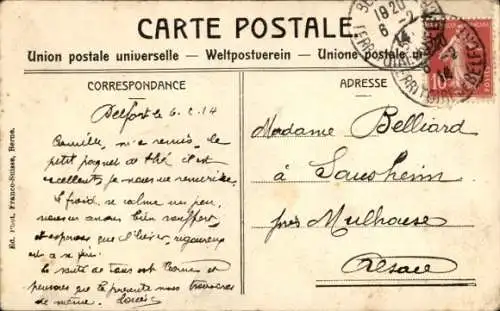 CARTE POSTALE.
Union postale universelle. — Weltpostverein. — Unione postale
CORRESPONDANCE
ADRESSE
Belfort le 6.2.14
Camille, m'a remis, le
petit paquet de thé il est
excellent, je vous en remercie.
Le froid, se calme un peu,
nous en avons bien souffert,
et espérons que l'hiver, rigoureux
La santé de tous est bonne et
pensons que la présente vous trouvera
de même. Louis
Madame Belliard
à Sausheim
près Mulhouse
Alsace
Ed. Phot. Franco-Suisse, Berne.
19 20
6 -2
14
10